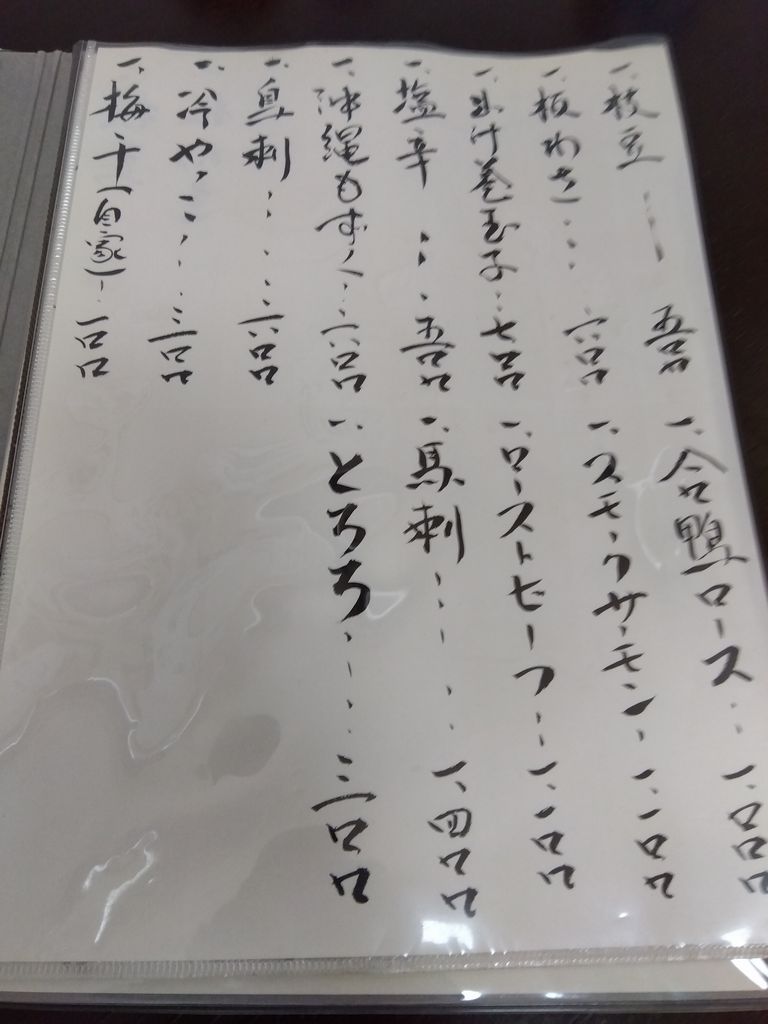 一、枝豆……五〇〇
一、板わさ……六〇〇
一、出汁巻玉子……七〇〇
一、塩辛……五〇〇
一、沖縄もずく……六〇〇
一、鳥刺……六〇〇
一、冷やっこ……三〇〇
一、梅干(自家)……一〇〇
一、合鴨ロース……一、〇〇〇
一、スモークサーモン……一、一〇〇
一、ローストビーフ……一、一〇〇
一、馬刺……一、四〇〇
一、とろろ……三〇〇